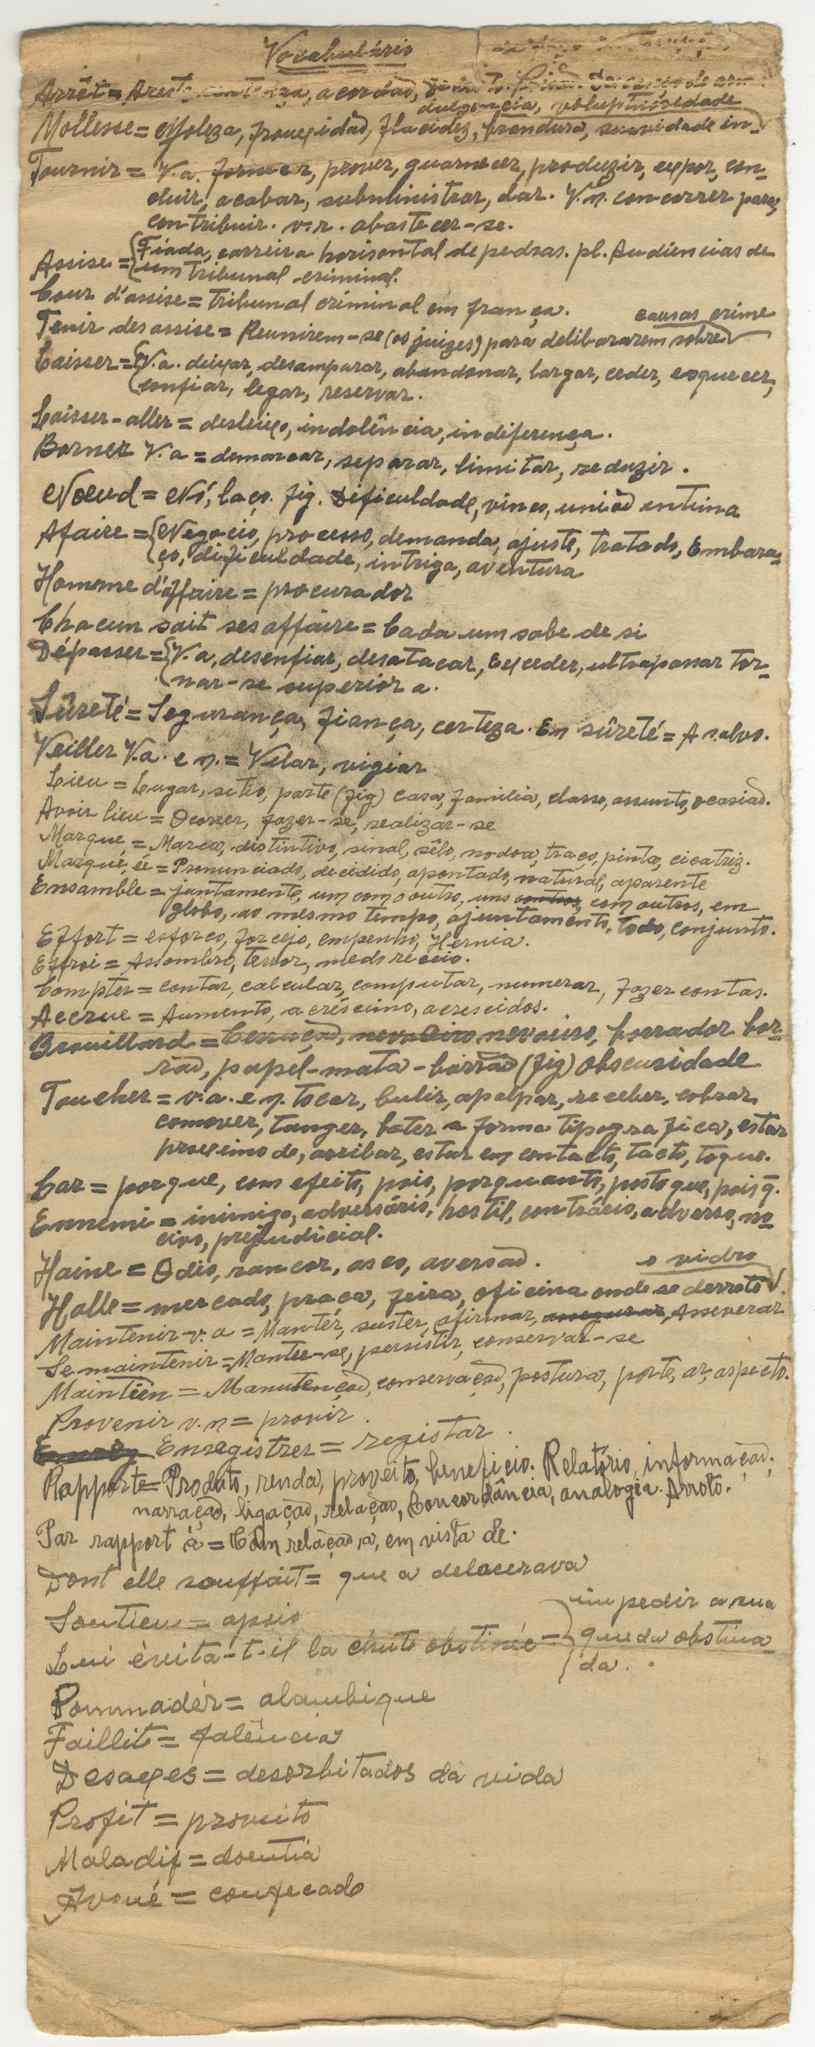 Vocabulário
Arrêt = Aresto, acordão,
dulgencia, voluptuosidade
Mollesse = Moleza, frouxidão, flacidez, brandura, suavidade in-
Fournir = V.a. fornecer, prover, guarnecer, produzir, expor, con-
cluir, acabar, subministrar, dar. V.n. concorrer para,
contribuir. v.r. abastecer-se.
Assise = Fiada, carreira horisontal de pedras. pl. Audiências de
um tribunal criminal.
Cour d'assise = tribunal criminal em frança.
causas crime
Tenir des assise = Reunirem-se (os juizes) para deliberarem sobre
Laisser = V.a. deixar, desamparar, abandonar, largar, ceder, esquecer,
confiar, legar, reservar.
Laisser-aller = desleixo, indolência, indiferença.
Borner V.a = demarcar, separar, limitar, reduzir.
Noeud = Nó, laço. fig. Dificuldade, vinco, união intima
Afaire = Negocio, processo, demanda, ajuste, tratado, Embara-
ço, dificuldade, intriga, aventura
Homome d'affaire = procurador
Chacun sait ses affaire = Cada um sabe de si
Dépasser = V.a, desenfiar, desatacar, Exceder, ultrapassar tor-
nar-se superior a.
Sûreté = Segurança, fiança, certeza. En sûreté = A salvo.
Veiller V.a. e n. = Velar, vigiar
Lieu = Lugar, sitio, parte (fig) casa, familia, classe, assunto, ocasião.
Avoir lieu = Ocorrer, fazer-se, realizar-se
Marque = Marca, distintivo, sinal, sêlo, nodoa, traço, pinta, cicatriz.
Marqué, ée = Pronunciado, decidido, apontado, natural, aparente
Ensamble = juntamente, um com o outro, uns com outros, em
globo, ao mesmo tempo, ajuntamento, todo, conjunto.
Effort = esforço, forcejo, empenho, Hernia.
Effroi = Assombro, terror, medo receio.
Compter = contar, calcular, computar, numerar, fazer contas.
Accrue = Aumento, acréscimo, acrescidos.
Brouillard = Cerração, nevoeiro, borrador bor-
rão, papel-mata-borrão (fig) obscuridade
Toucher = v.a. e n. tocar, bulir, apalpar, receber, cobrar,
comover, tanger, bater a forma tipografica, estar
proximo de, arribar, estar em contacto, tacto, toque.
Car = porque, com efeito, pois, porquanto, posto que, pois q̃.
Ennemi = inimigo, adversário, hostil, contrário, adverso, no-
civo, prejudicial.
Haine = Odio, rancor, asco, aversão.
o vidro
Halle = mercado, praça, feira, oficina onde se derrete
Maintenir-v.a = Mantêr, suster, afirmar, assegurar, Asseverar
Se maintenir = Manter-se, persistir, conservar-se
Maintien = Manutenção, conservação, postura, porte, ar, aspecto.
Provenir v.n = provir.
Enregistrer = registar.
Rapporte = Produto, renda, proveito, beneficio. Relatório, informação,
narração, ligação, relação, Concordância, analogia. Arroto.
Par rapport à = Com relação a, em vista de.
Dont elle souffait = que a delacerava
Soutien = apoio
impedir a sua
Lui évita-t-il la chute obstinée = queda obstina-
da.
Pommadér = alambique
Faillite = falência
Desaxes = desorbitados da vida
Profit = proveito
Maladif = doentia
Avoué = confecado